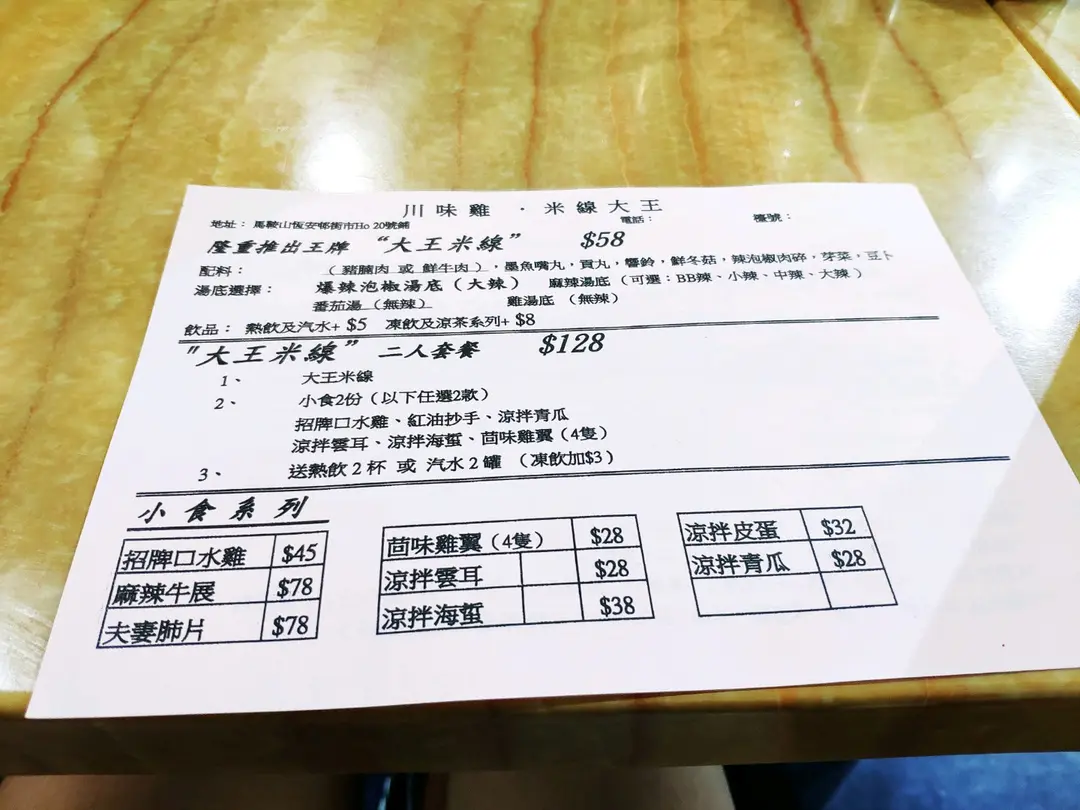 川味雞 · 米線大王
地址： 馬鞍山恆安邨街市Ho 20號鋪 電話： 檯號：
隆重推出王牌 “大王米線” $58
配料： （豬腩肉 或 鮮牛肉），墨魚嘴丸，貢丸，響鈴，鮮冬菇，辣泡椒肉碎，芽菜，豆卜
湯底選擇： 爆辣泡椒湯底（大辣） 麻辣湯底（可選：BB辣、小辣、中辣、大辣）
番茄湯（無辣） 雞湯底 （無辣）
飲品： 熱飲及汽水+ $5 凍飲及涼茶系列+ $8
"大王米線” 二人套餐 $128
1、 大王米線
2、 小食2份（以下任選2款）
招牌口水雞、紅油抄手、涼拌青瓜
涼拌雲耳、涼拌海蜇、茴味雞翼（4隻）
3、 送熱飲 2 杯 或 汽水 2 罐 （凍飲加$3）
小食系列
招牌口水雞 $45
麻辣牛展 $78
夫妻肺片 $78
茴味雞翼（4隻） $28
涼拌雲耳 $28
涼拌海蜇 $38
涼拌皮蛋 $32
涼拌青瓜 $28